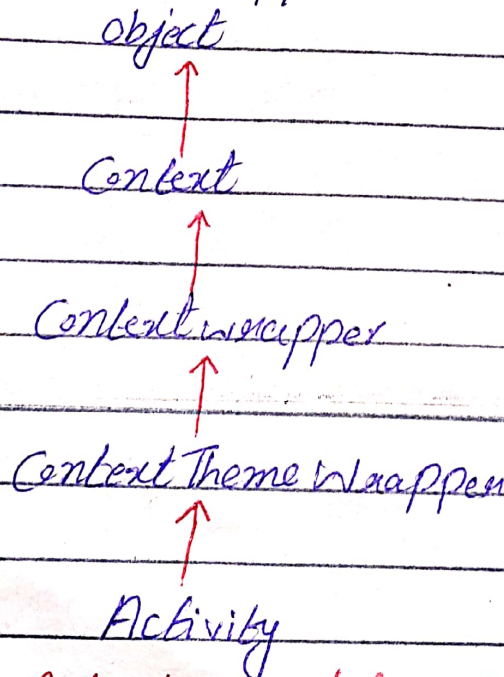 object
Context
Contextwrapper
ContextThemeWrapper
Activity